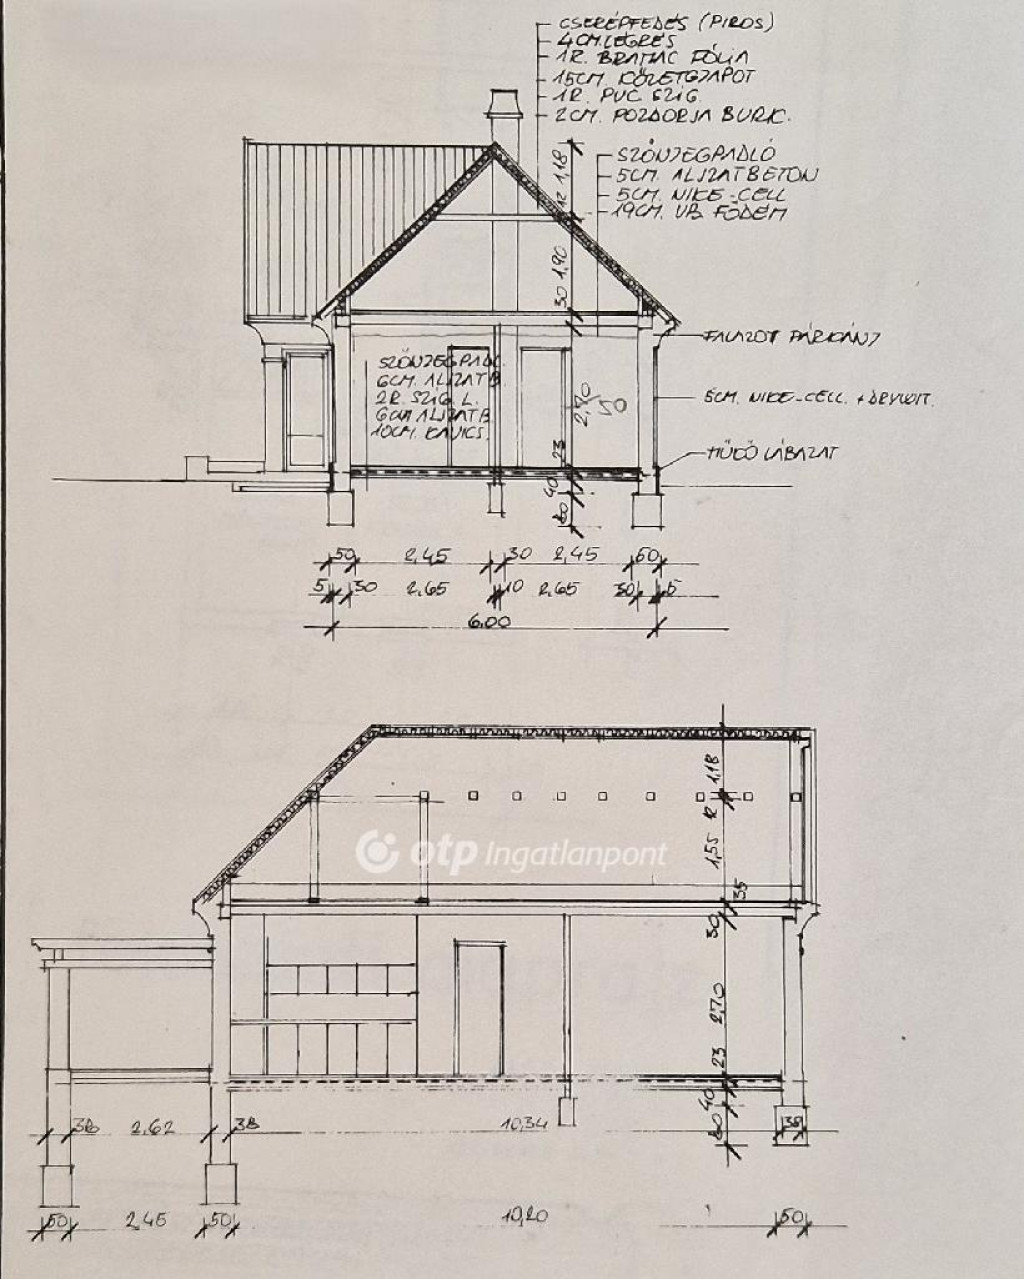 CSERÉPFEDÉS (PIROS)
4CM. LÉGRÉS
1R. BRAMAC FÓLIA
15CM. KŐZETGYAPOT
1R. PVC SZIG.
2CM. POZDORJA BURK.
SZŐNYEGPADLÓ
5CM. ALJZATBETON
5CM. NIKE-CELL
19CM. VB FÖDÉM
1,18
12
1,90
30
FALAZOTT PÁRKÁNY
SZŐNYEGPADL.
6CM. ALJZATB.
2R. SZIG. L.
6CM ALJZATB.
10CM. KAVICS.
2,70
50
5CM. NIKE-CELL. + DRYVIT.
23
MŰKŐ LÁBAZAT
40
80
50 2,45 30 2,45 50
5 30 2,65 10 2,65 30 5
6,00
1,18
12
1,55
35
otp Ingatlanpont
30
2,70
23
40
80
38 2,62 38 10,34 38
50 2,45 50 10,20 50